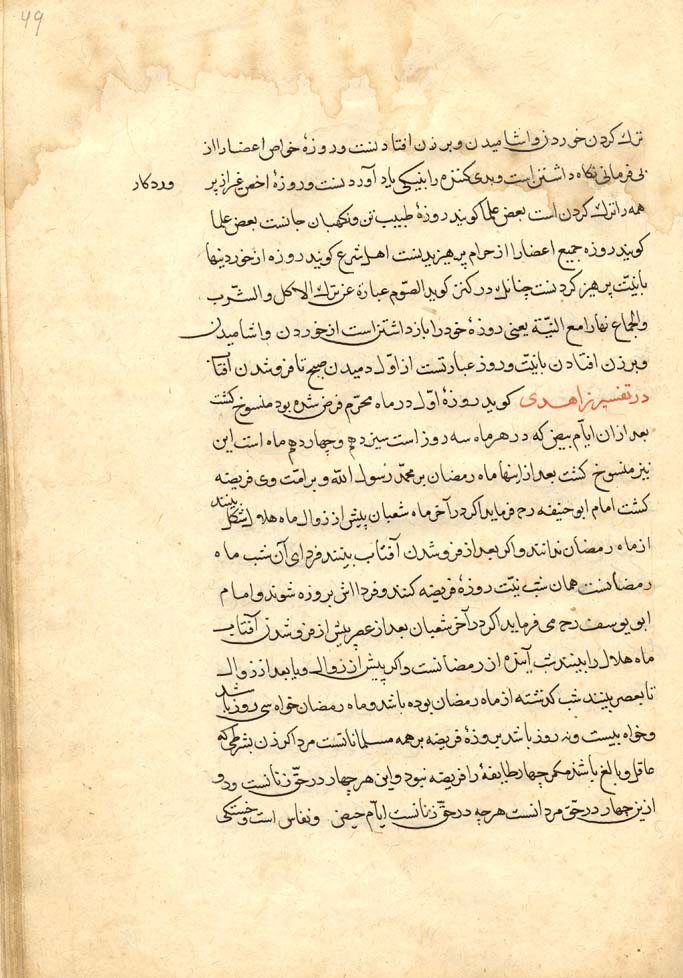 49
ترك كردن خوردن و اشاميدن و بر زن افتادنست و روزهٔ خواص اعضا را از
بی فرمانی نگاه داشتن است و بدی كننده را بنیكی یاد آوردنست و روزهٔ اخص غیر از پر وردكار
همه را ترك كردن است بعض علما كویند روزهٔ طبیب تن و نكهبان جانست بعض علما
كویند روزه جمیع اعضا را از حرام پرهیزیدنست اهل شرع كویند روزه از خوردنیها
بانیّت پرهیز كردنست چنانك در كنز كوید الصّوم عبارة عن ترك الاكل والشّرب
والجماع نهارا مع النیّة یعنی روزه خود را بازداشتن است از خوردن و اشامیدن
و بر زن افتادن بانیّت و روز عبارتست از اوّل دمیدن صبح تا فرو شدن آفتاب
در تفسیر زاهدی كوید روزهٔ اوّل در ماه محرّم فرض شده بود منسوخ كشت
بعد ازان ایّام بیض كه در هر ماه سه روز است سیزدهم و چهاردهم ماه است این
نیز منسوخ كشت بعد از اینها ماه رمضان بر محمّد رسول الله و بر امّت وی فریضه
كشت امام ابو حنیفه رح فرماید اكر در آخر ماه شعبان پیش از زوال ماه هلال بینند
از ماه رمضان ندانند و اكر بعد از فرو شدن آفتاب بینند فردای آن شب ماه
رمضانست همان شب نیّت روزهٔ فریضه كنند و فردااش بروزه شوند و امام
ابو یوسف رح می فرماید اكر در آخر شعبان بعد از عصر پیش از فرو شدن آفتاب
ماه هلال را بینند شب آینده از رمضانست و اكر پیش از زوال و یا بعد از زوال
تا بعصر بینند شب كذشته از ماه رمضان بوده باشد و ماه رمضان خواه سی روز باشد
و خواه بیست و نه روز باشد بروزهٔ فریضه بر همه مسلمانانست مرد اكر زن بشرطی كه
عاقل و بالغ باشد مكر چهار طایفهٔ را فریضه نبود و این هر چهار در حقّ زنانست و دو
از این چهار در حق مردانست هرچه در حقّ زنانست ایّام حیض و نفاس است و خستكی